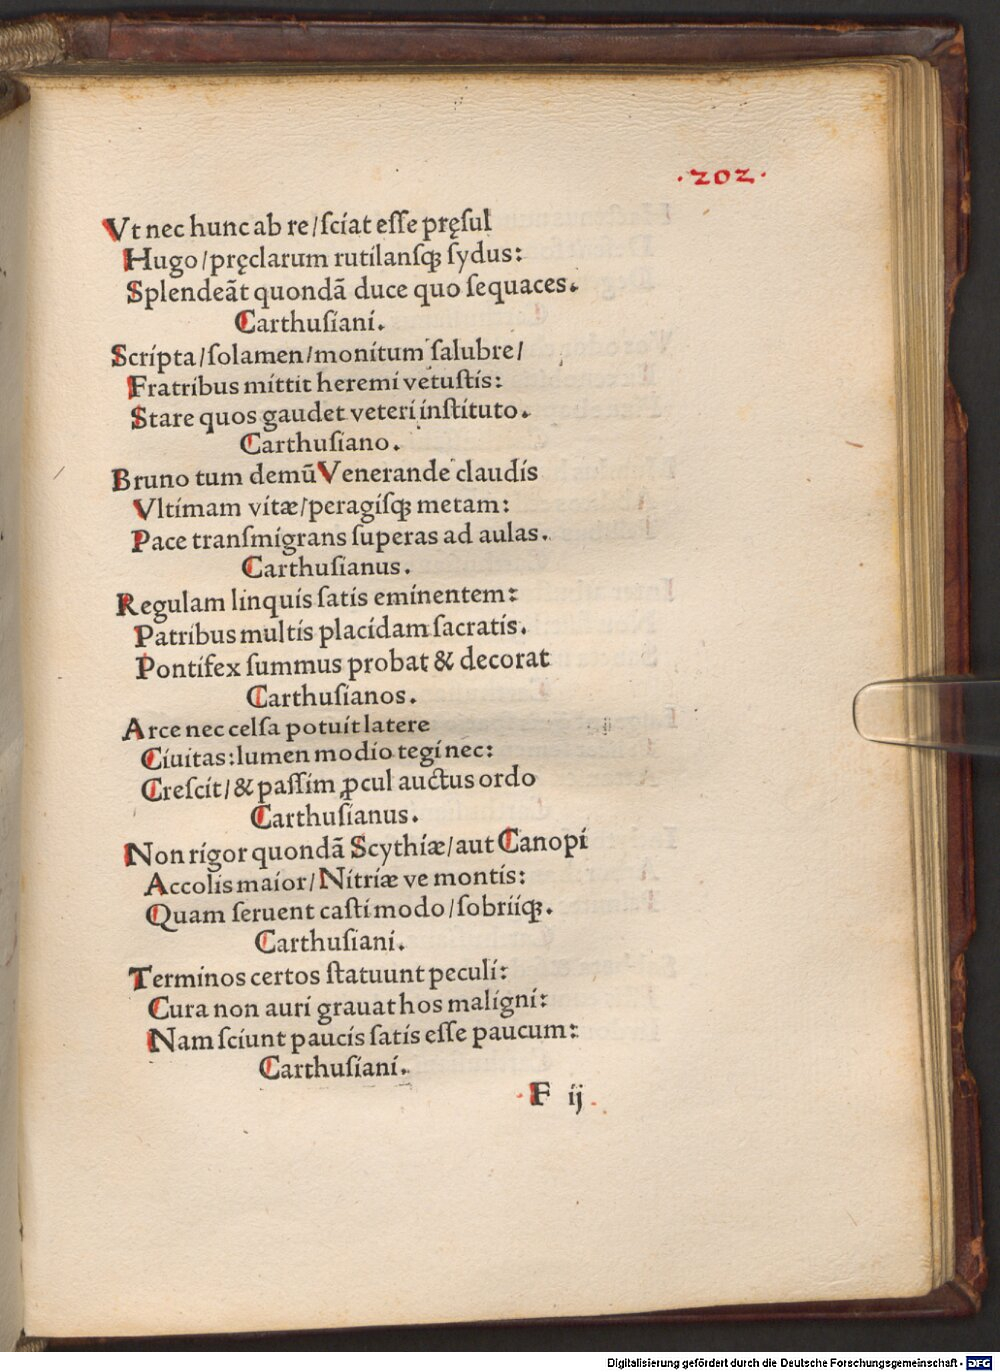 ·202·
Vt nec hunc ab re/ſciat eſſe pręſul
Hugo/pręclarum rutilanſqꝫ ſydus:
Splendeãt quondã duce quo ſequaces.
Carthuſiani.
Scripta/ſolamen/monitum ſalubre/
Fratribus mittit heremi vetuſtis:
Stare quos gaudet veteri inſtituto.
Carthuſiano.
Bruno tum demũ Venerande claudis
Vltimam vitæ/peragiſqꝫ metam:
Pace tranſmigrans ſuperas ad aulas.
Carthuſianus.
Regulam linquis ſatis eminentem:
Patribus multis placidam ſacratis.
Pontifex ſummus probat & decorat
Carthuſianos.
Arce nec celſa potuit latere
Ciuitas:lumen modio tegi nec:
Creſcit/& paſſim ꝓcul auctus ordo
Carthuſianus.
Non rigor quondã Scythiæ/aut Canopi
Accolis maior/Nitriæ ve montis:
Quam ſeruent caſti modo/ſobriiqꝫ.
Carthuſiani.
Terminos certos ſtatuunt peculi:
Cura non auri grauat hos maligni:
Nam ſciunt paucis ſatis eſſe paucum:
Carthuſiani.
F ij
Digitalisierung gefördert durch die Deutsche Forschungsgemeinschaft - DFG